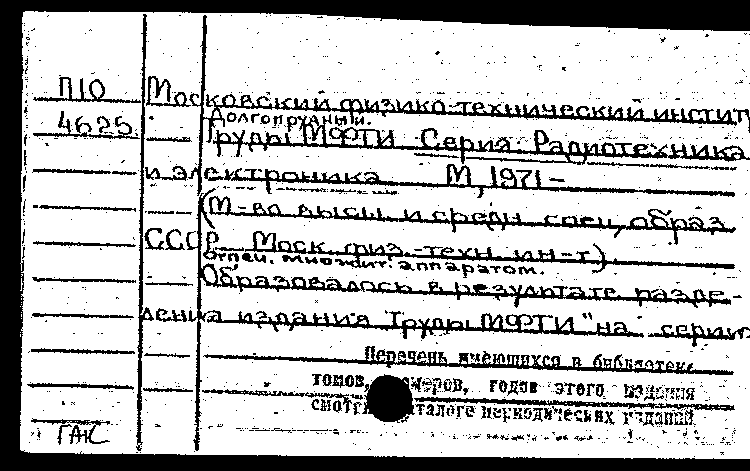 П10
Московский физико-технический институ
Долгопрудный.
4625
Труды МФТИ Серия: Радиотехника
и электроника М, 1971-
(М-во высш. и средн. спец. образ.
СССР. Моск. физ.-техн. ин-т.)
Отпеч. множит. аппаратом.
Образовалось в результате разде-
ления издания Труды МФТИ" на серии
Перечень имеющихся в библиотеке
томов, номеров, годов этого издания
смотри каталоге периодических изданий
ГАК